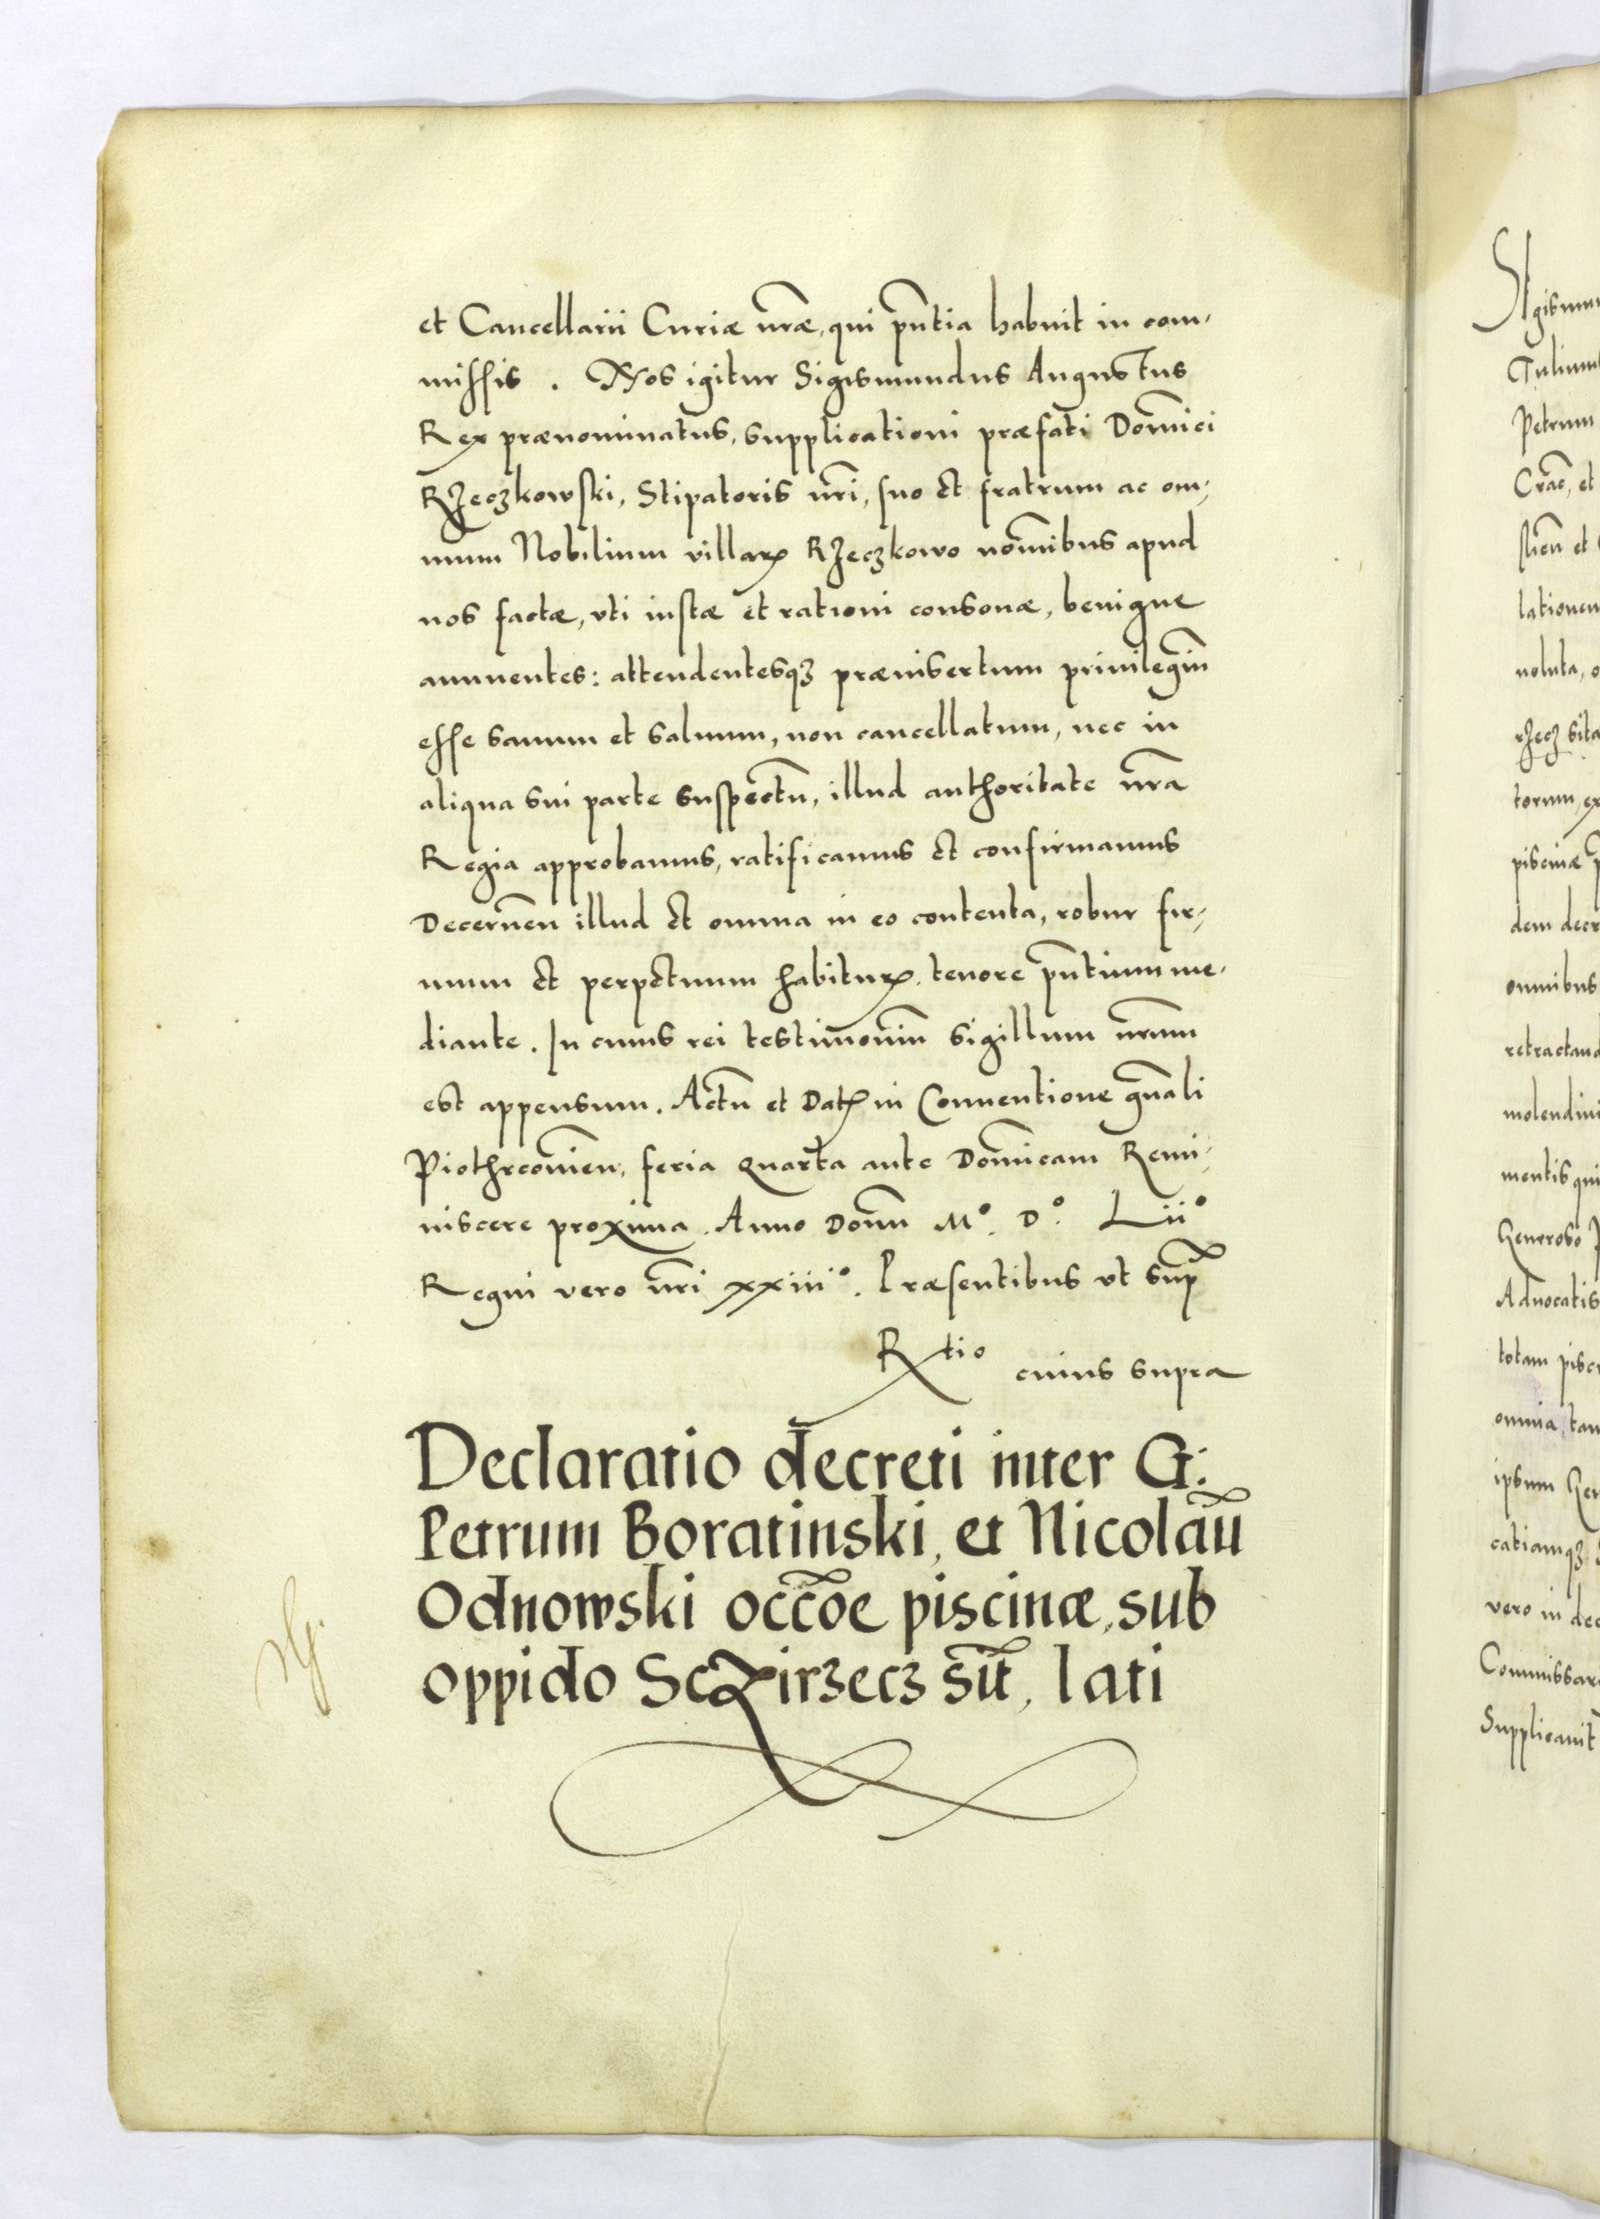 et Cancellarii Curiæ nr̃æ, qui pñtia habuit in com-
missis. Nos igitur Sigismundus Augustus
Rex prænominatus, supplicationi præfati Domĩci
Rzeczkowski, Stipatoris nr̃i, suo et fratrum ac om-
nium Nobilium villaꝝ Rzeczkowo nom̃ibus apud
nos factæ, vti iustæ et rationi consonæ, benigne
annuentes: attendentesqꝫ prænisertum priuilegiũ
esse sanum et saluum, non cancellatum, nec in
aliqua sui parte suspectũ, illud authoritate nr̃a
Regia approbamus, ratificamus et confirmamus
Decerneñ illud et omnia in eo contenta, robur fir-
mum et perpetuum habituꝝ. tenore pñtium me-
diante. In cuius rei testimoniũ sigillum nr̃um
est appensum. Actũ et Datꝝ in Conuentione gñali
Piothrcouieñ, feria quarta ante Domĩcam Remi-
niscere proxima. Anno Domĩ Mº. Dº. Liiº
Regni vero nr̃i xxiiiº. Præsentibus vt sup̃
Rtio cuius supra
Declaratio decreti inter G:
Petrum Boratinski, et Nicolaũ
Odnowski occõe piscinæ, sub
oppido Sczirzecz sit̃, lati
Sigismun
Petrum
Crac̃, et
lationem
noluta, o
rzecz sita
torum, ex
piscinæ p
dem decr
omnibus
retractand
molendini
mentis qui
Generoso P
Aduocatis
totam pisci
omnia, tam
ipsum Gen
catiamqꝫ
vero in dec
Commissar
Supplicauit